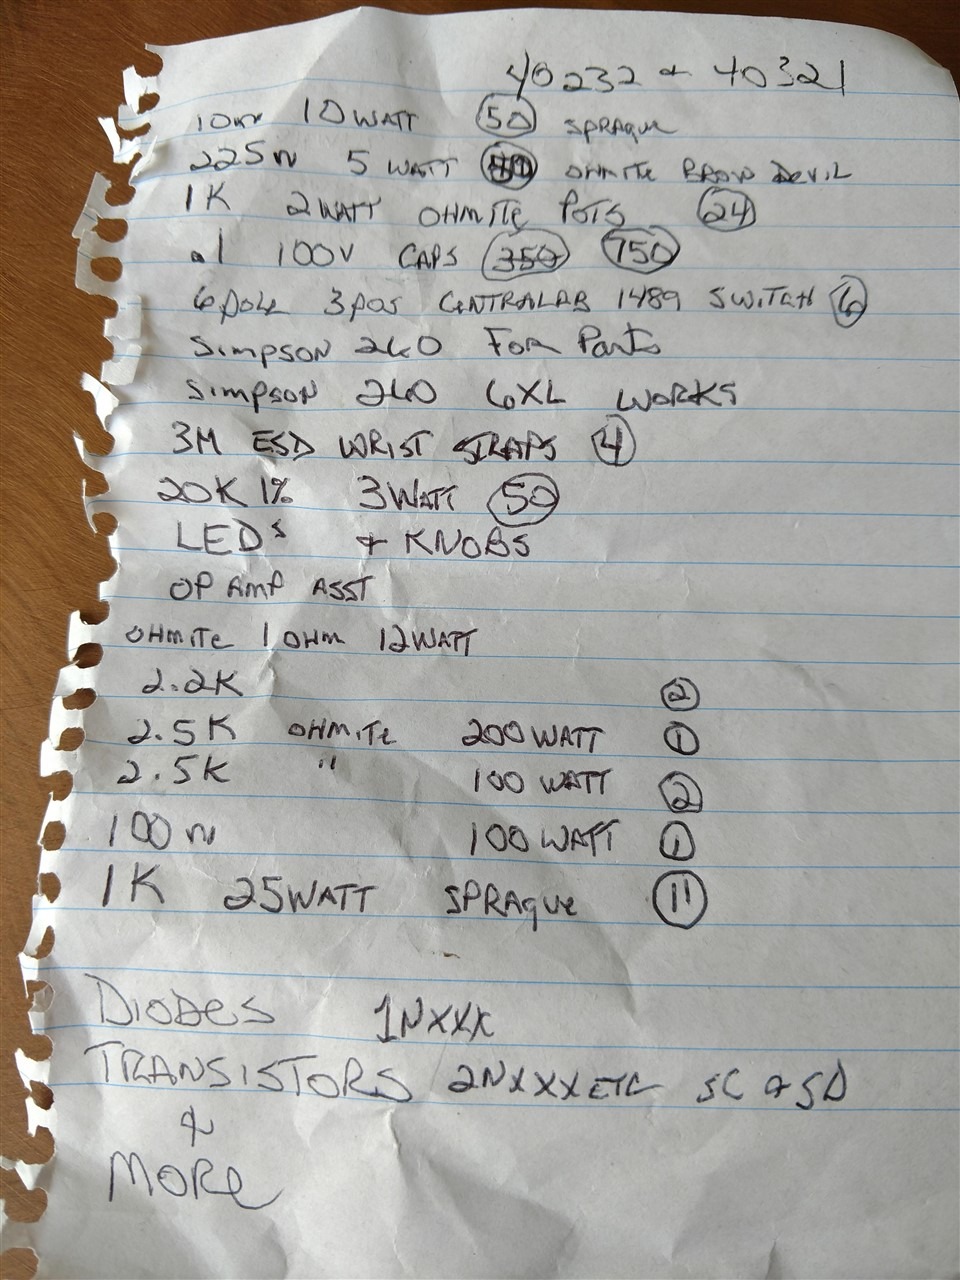 40232 + 40321
10 10 WATT 50 SPRAGUE
225 5 WATT OHMITE BROW DEVIL
1K 2WATT OHMITE POTS 24
.1 100V CAPS 350 750
6 pole 3 pos CENTRALAB 1489 SWITCH 6
SIMPSON 260 FOR Parts
SIMPSON 260 6XL WORKS
3M ESD WRIST STRAPS 4
20K 1% 3WATT 50
LEDs + KNOBS
OP AMP ASST
OHMITE 1 OHM 12WATT
2.2K 2
2.5K OHMITE 200WATT 1
2.5K " 100 WATT 2
100 100WATT 1
1K 25WATT SPRAGUE 11
DIODES 1NXXX
TRANSISTORS 2NXXX ETC SC + SD
+
MORE